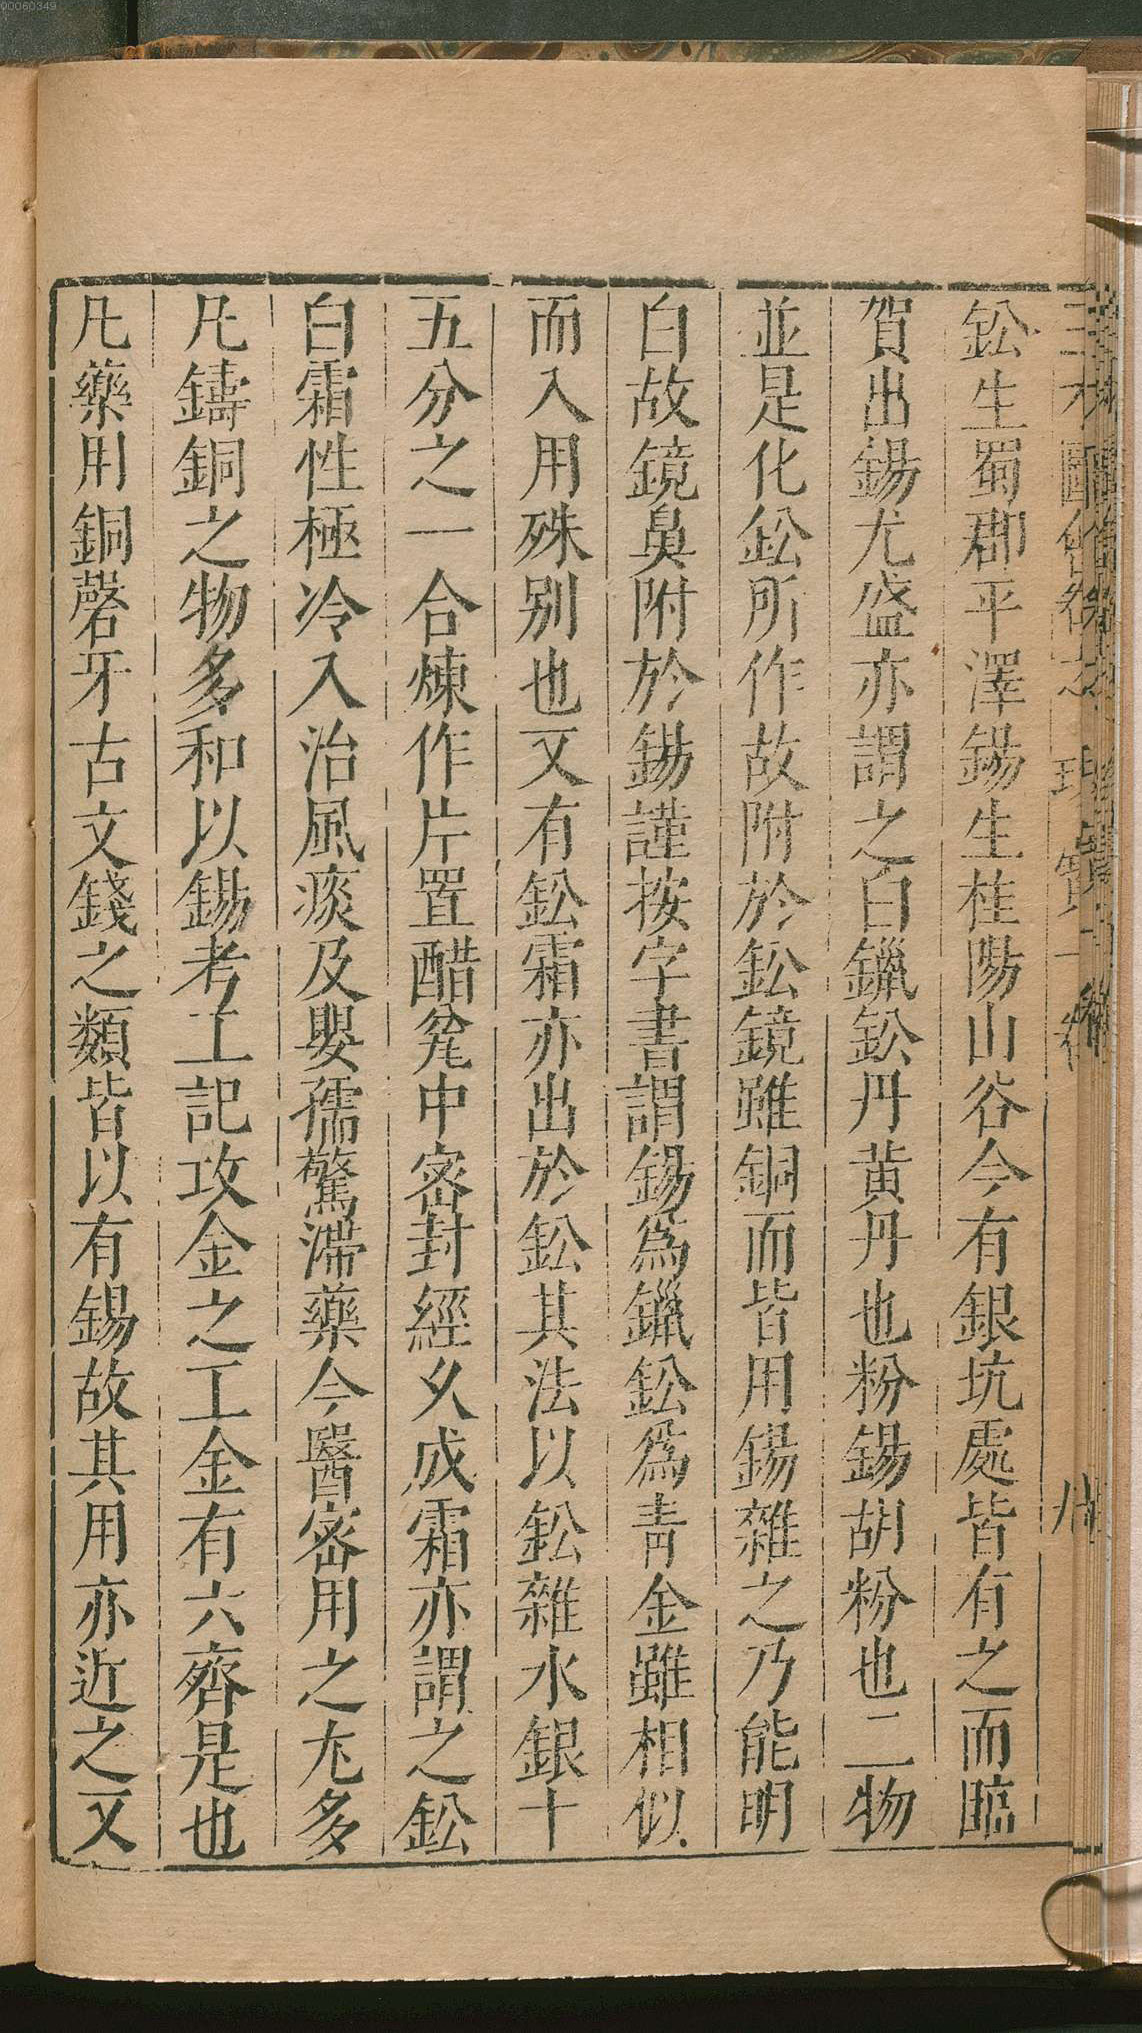 00060349
鈆生蜀郡平澤錫生桂陽山谷今有銀坑處皆有之而臨
賀出錫尤盛亦謂之白鑞鈆丹黃丹也粉錫胡粉也二物
並是化鈆所作故附於鈆鏡雖銅而皆用錫雜之乃能明
白故鏡鼻附於錫謹按字書謂錫爲鑞鈆爲靑金雖相似
而入用殊别也又有鈆霜亦出於鈆其法以鈆雜水銀十
五分之一合煉作片置醋甕中密封經久成霜亦謂之鈆
白霜性極冷入治風痰及嬰孺驚滯藥今醫密用之尤多
凡鑄銅之物多和以錫考工記攻金之工金有六齊是也
凡藥用銅磬牙古文錢之類皆以有錫故其用亦近之又